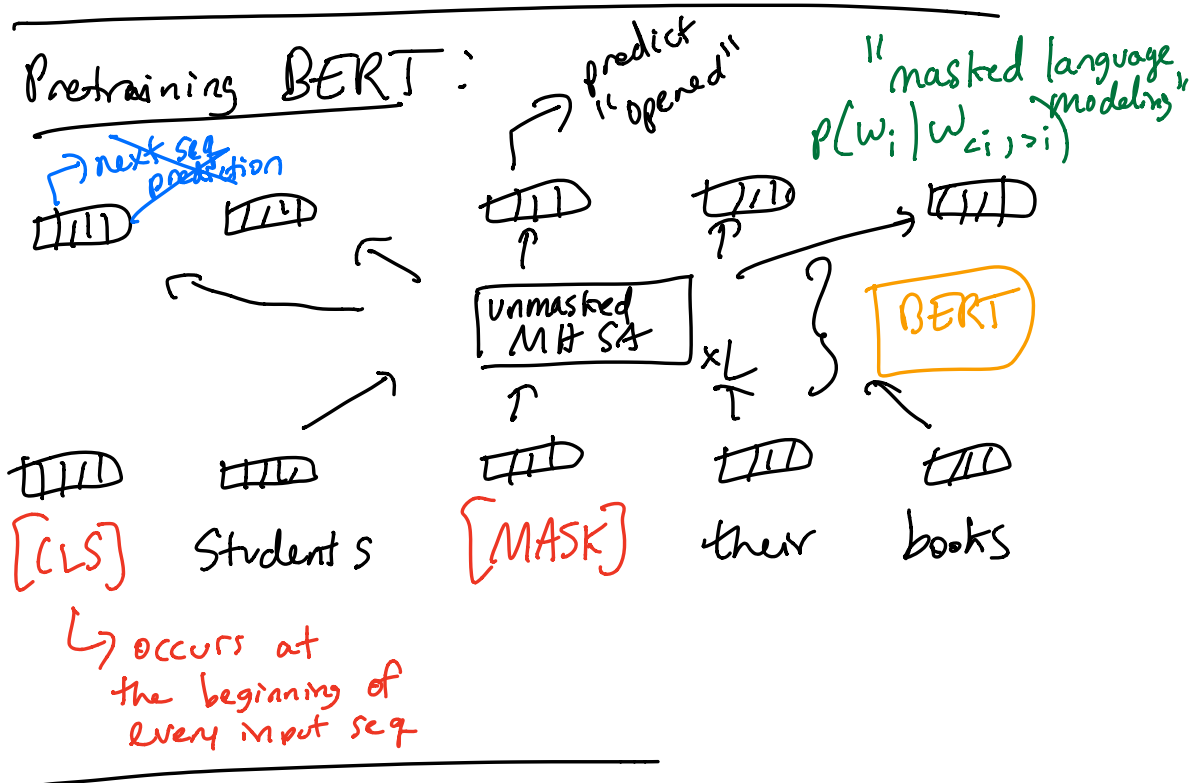 Pretraining BERT:
predict
"opened"
"masked language
modeling"
P(w_i | w_{<i, >i})
next seq
prediction
unmasked
MH SA
xL
BERT
[CLS] Students [MASK] their books
↳ occurs at
the beginning of
every input seq